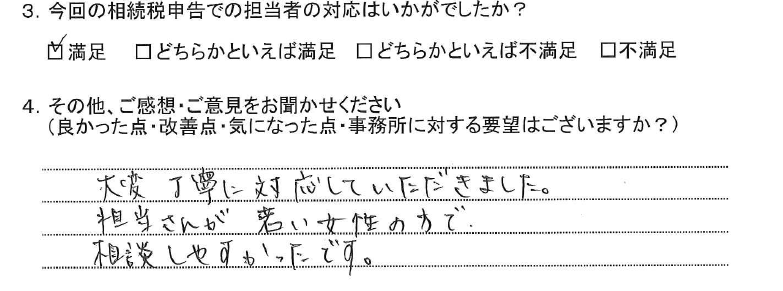 3. 今回の相続税申告での担当者の対応はいかがでしたか?
☑満足 □どちらかといえば満足 □どちらかといえば不満足 □不満足
4. その他、ご感想・ご意見をお聞かせください
(良かった点・改善点・気になった点・事務所に対する要望はございますか?)
大変 丁寧に対応していただきました。
担当さんが 若い女性の方で.
相談しやすかったです。